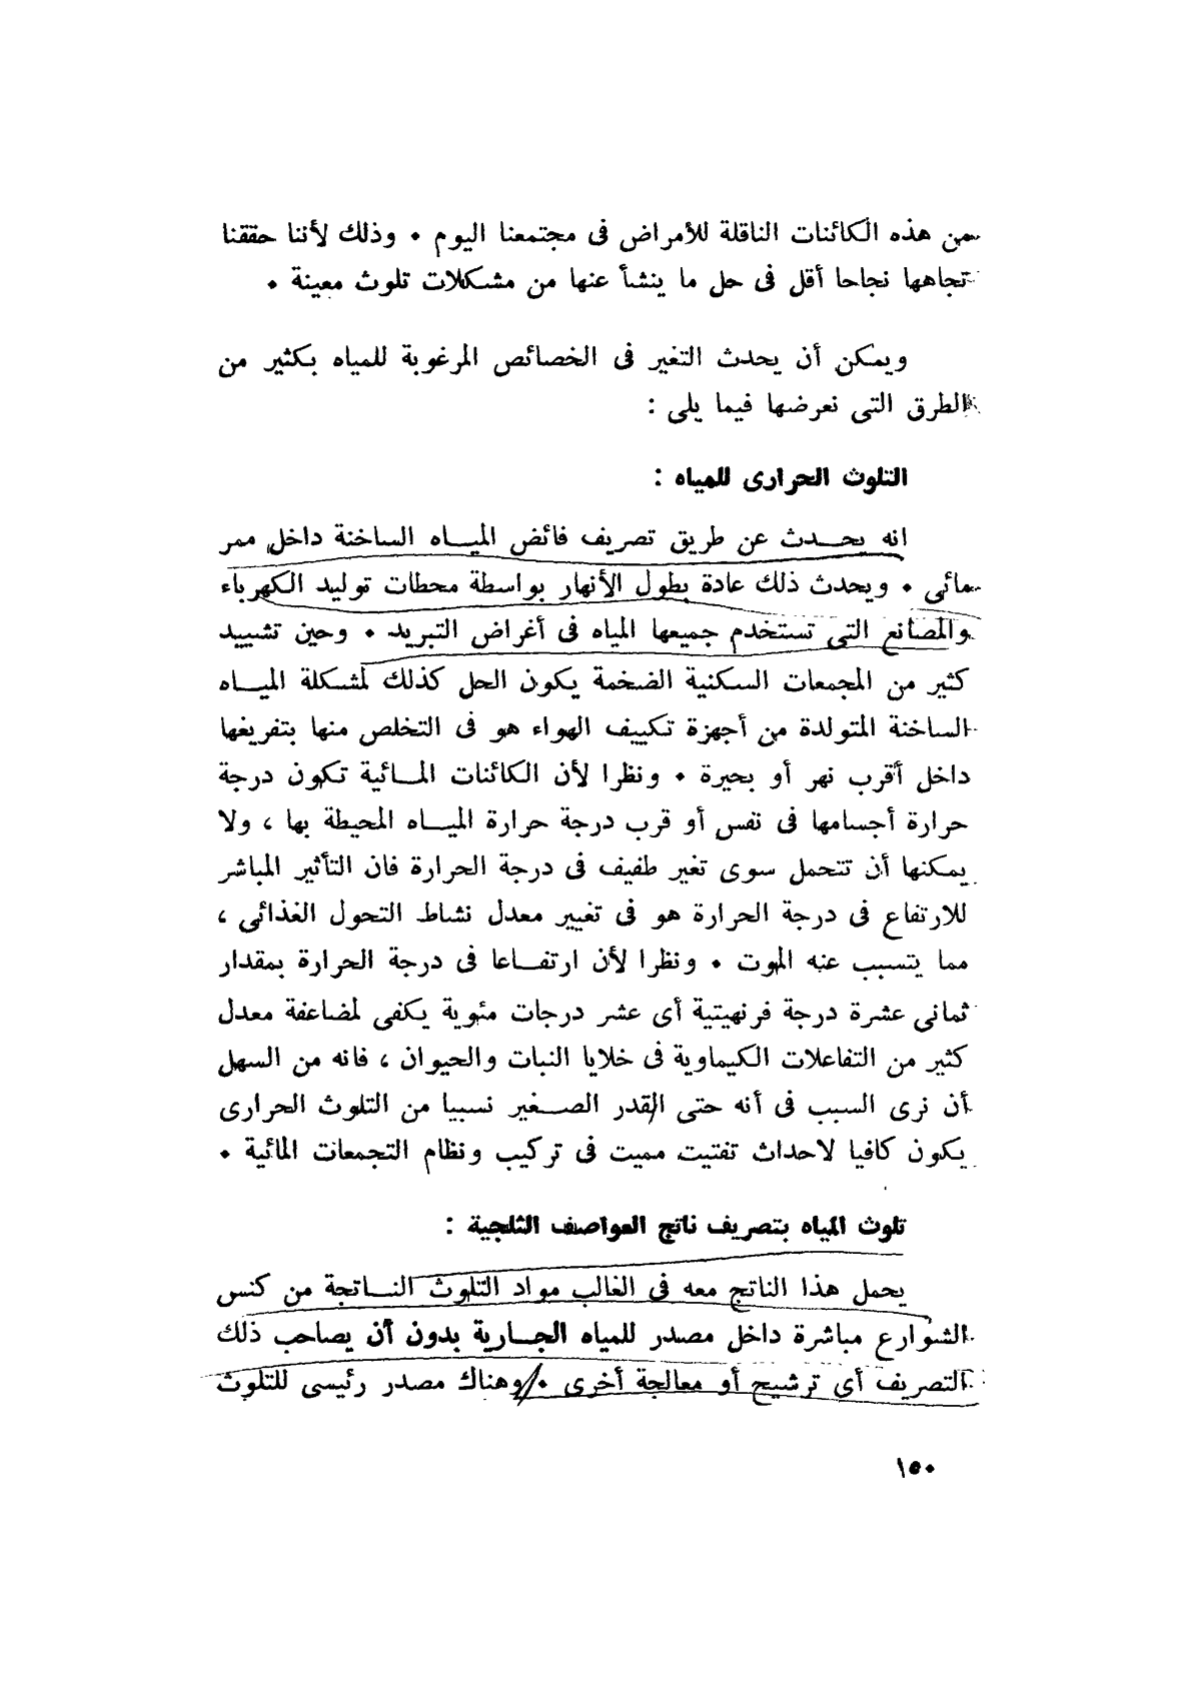 من هذه الكائنات الناقلة للأمراض فى مجتمعنا اليوم ٠ وذلك لأننا حققنا
تجاهها نجاحا أقل فى حل ما ينشأ عنها من مشكلات تلوث معينة ٠
ويمكن أن يحدث التغير فى الخصائص المرغوبة للمياه بكثير من
الطرق التى نعرضها فيما يلى :
التلوث الحرارى للمياه :
انه يحـــدث عن طريق تصريف فائض الميـــاه الساخنة داخل ممر
مائى ٠ ويحدث ذلك عادة بطول الأنهار بواسطة محطات توليد الكهرباء
والمصانع التى تستخدم جميعها المياه فى أغراض التبريد ٠ وحين تشييد
كثير من المجمعات السكنية الضخمة يكون الحل كذلك لمشكلة الميـــاه
الساخنة المتولدة من أجهزة تكييف الهواء هو فى التخلص منها بتفريغها
داخل أقرب نهر أو بحيرة ٠ ونظرا لأن الكائنات المــائية تكون درجة
حرارة أجسامها فى نفس أو قرب درجة حرارة الميـــاه المحيطة بها ، ولا
يمكنها أن تتحمل سوى تغير طفيف فى درجة الحرارة فان التأثير المباشر
للارتفاع فى درجة الحرارة هو فى تغيير معدل نشاط التحول الغذائى ،
مما يتسبب عنه الموت ٠ ونظرا لأن ارتفــاعا فى درجة الحرارة بمقدار
ثمانى عشرة درجة فرنهيتية أى عشر درجات مئوية يكفى لمضاعفة معدل
كثير من التفاعلات الكيماوية فى خلايا النبات والحيوان ، فانه من السهل
أن نرى السبب فى أنه حتى القدر الصـــغير نسبيا من التلوث الحرارى
يكون كافيا لاحداث تفتيت مميت فى تركيب ونظام التجمعات المائية ٠
تلوث المياه بتصريف ناتج العواصف الثلجية :
يحمل هذا الناتج معه فى الغالب مواد التلوث النـــاتجة من كنس
الشوارع مباشرة داخل مصدر للمياه الجـــارية بدون أن يصاحب ذلك
التصريف أى ترشيح أو معالجة أخرى ٠ وهناك مصدر رئيسى للتلوث
١٥٠